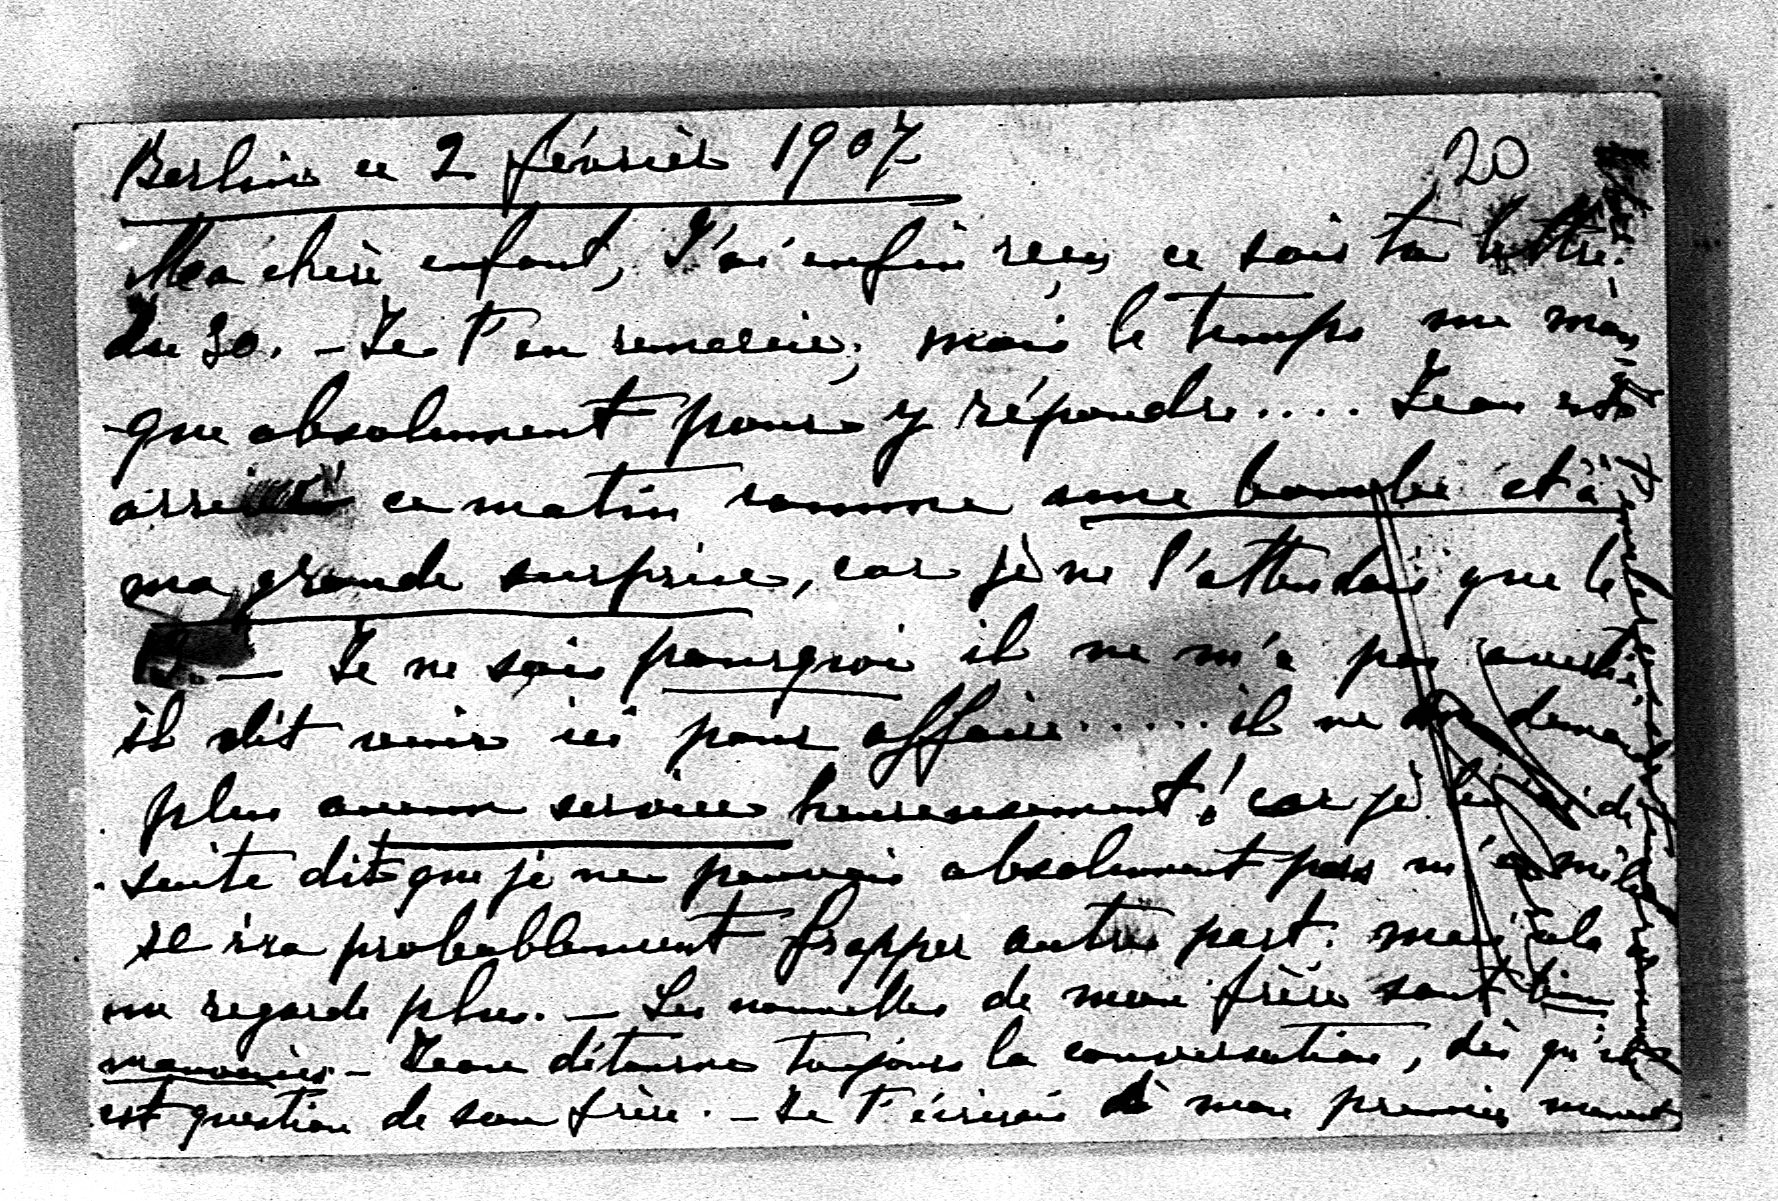 Berlin ce 2 février 1907
20
Ma chère enfant, J'ai enfin reçu ce soir ta lettre
du 30. — Je t'en remercie, mais le temps me man
que absolument pour y répondre.... Jean est
arrivé ce matin comme une bombe et à
ma grande surprise, car je ne l'attendais que le
— Je ne sais pourquoi il ne m'a pas averti,
il dit venir ici pour affaire..... il ne demande
plus aucun service heureusement! car je lui ai de
suite dit que je ne pouvais absolument pas
se ira probablement frapper autre part. mais cela
me regarde plus. — Les nouvelles de mon frère sont bien
mauvaises. — Jean détourne toujours la conversation, dès qu'il
est question de son frère. — Je t'écrirai à mon premier moment